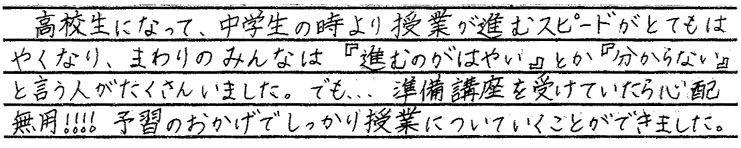 高校生になって、中学生の時より授業が進むスピードがとてもは
やくなり、まわりのみんなは『進むのがはやい』とか『分からない』
と言う人がたくさんいました。でも... 準備講座を受けていたら心配
無用!!!! 予習のおかげでしっかり授業についていくことができました。